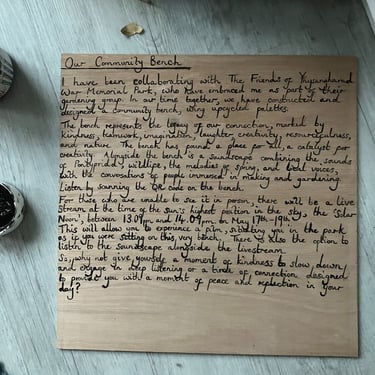 Our Community Bench
I have been collaborating with The Friends of
War Memorial Park, who have embraced me as part of their
gardening group. In our time together, we have constructed and
designed a community bench, using upcycled palettes.
The bench represents the legacy of our connection, marked by
kindness, teamwork, imagination, laughter, creativity, resourcefulness,
and nature. The bench has found a place for all, a catalyst for
creativity. Alongside the bench is a soundscape combining the sounds
of Pontypridd's wildlife, the melodies of spring and local voices,
with the conversations of people immersed in making and gardening.
Listen by scanning the QR code on the bench.
For those who are unable to see it in person, there will be a live
stream at the time of the sun's highest position in the sky, the 'Solar
Noon', between 13.09 and 14.09 pm on May 17th - 19th.
This will allow you to experience a film, situating you in the park
as if you were sitting on this very bench. There is also the option to
listen to the soundscape alongside the livestream.
So, why not give yourself a moment of kindness to slow down,
and engage in deep listening or a time of connection designed
to provide you with a moment of peace and reflection in your
day?